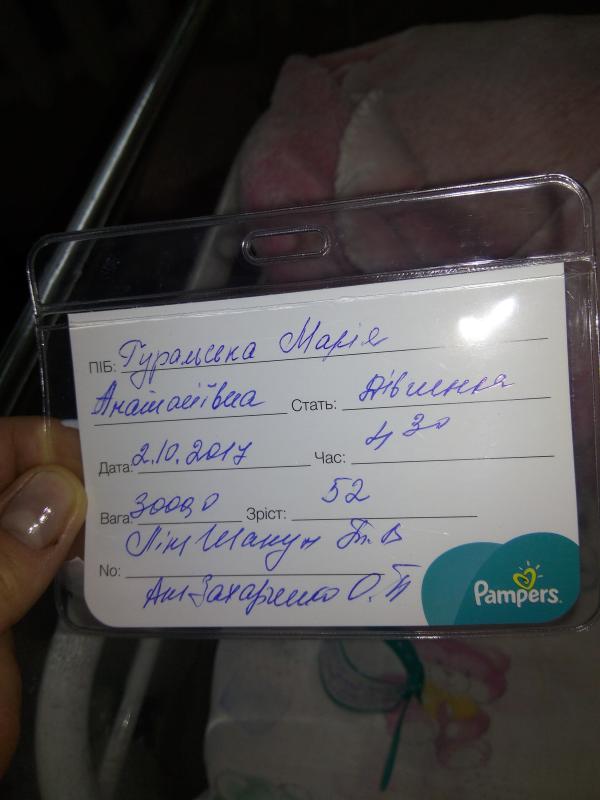 ПІБ: Гуральська Марія
Анатоліївна Стать: Дівчинка
Дата: 2.10.2017 Час: 4 30
Вага: 3000,0 Зріст: 52
Лік Шакун Т. В
No:
Ак Захарченко О. Т
Pampers